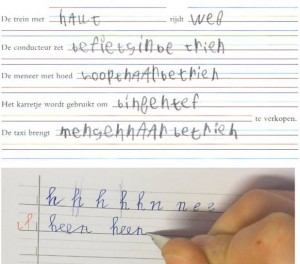 De trein met haut rijdt weg
De conducteur zet de fiets in de trien
De meneer met hoed loopt naar de trien
Het karretje wordt gebruikt om dingen tef te verkopen.
De taxi brengt mensen naar de trien
h h h h h n n e e
heen heen